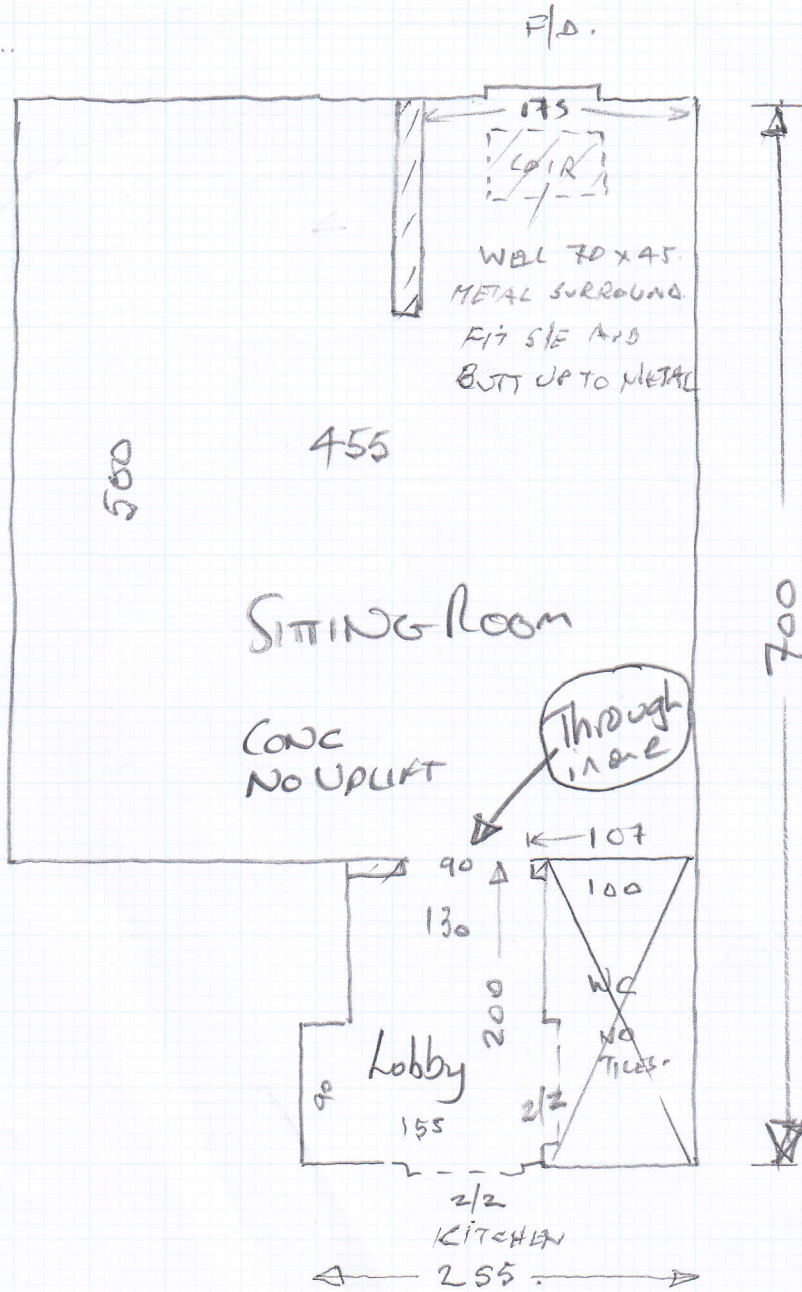 F/D.
175
COIR
WELL 70 x 45.
METAL SURROUND
FIT S/E AND
BUTT UP TO METAL
455
500
SITTING ROOM
700
Through
in one
CONC
NO UPLIFT
107
90
100
130
200
WC
NO
TILES.
Lobby
90
155
2/2
2/2
KITCHEN
255.